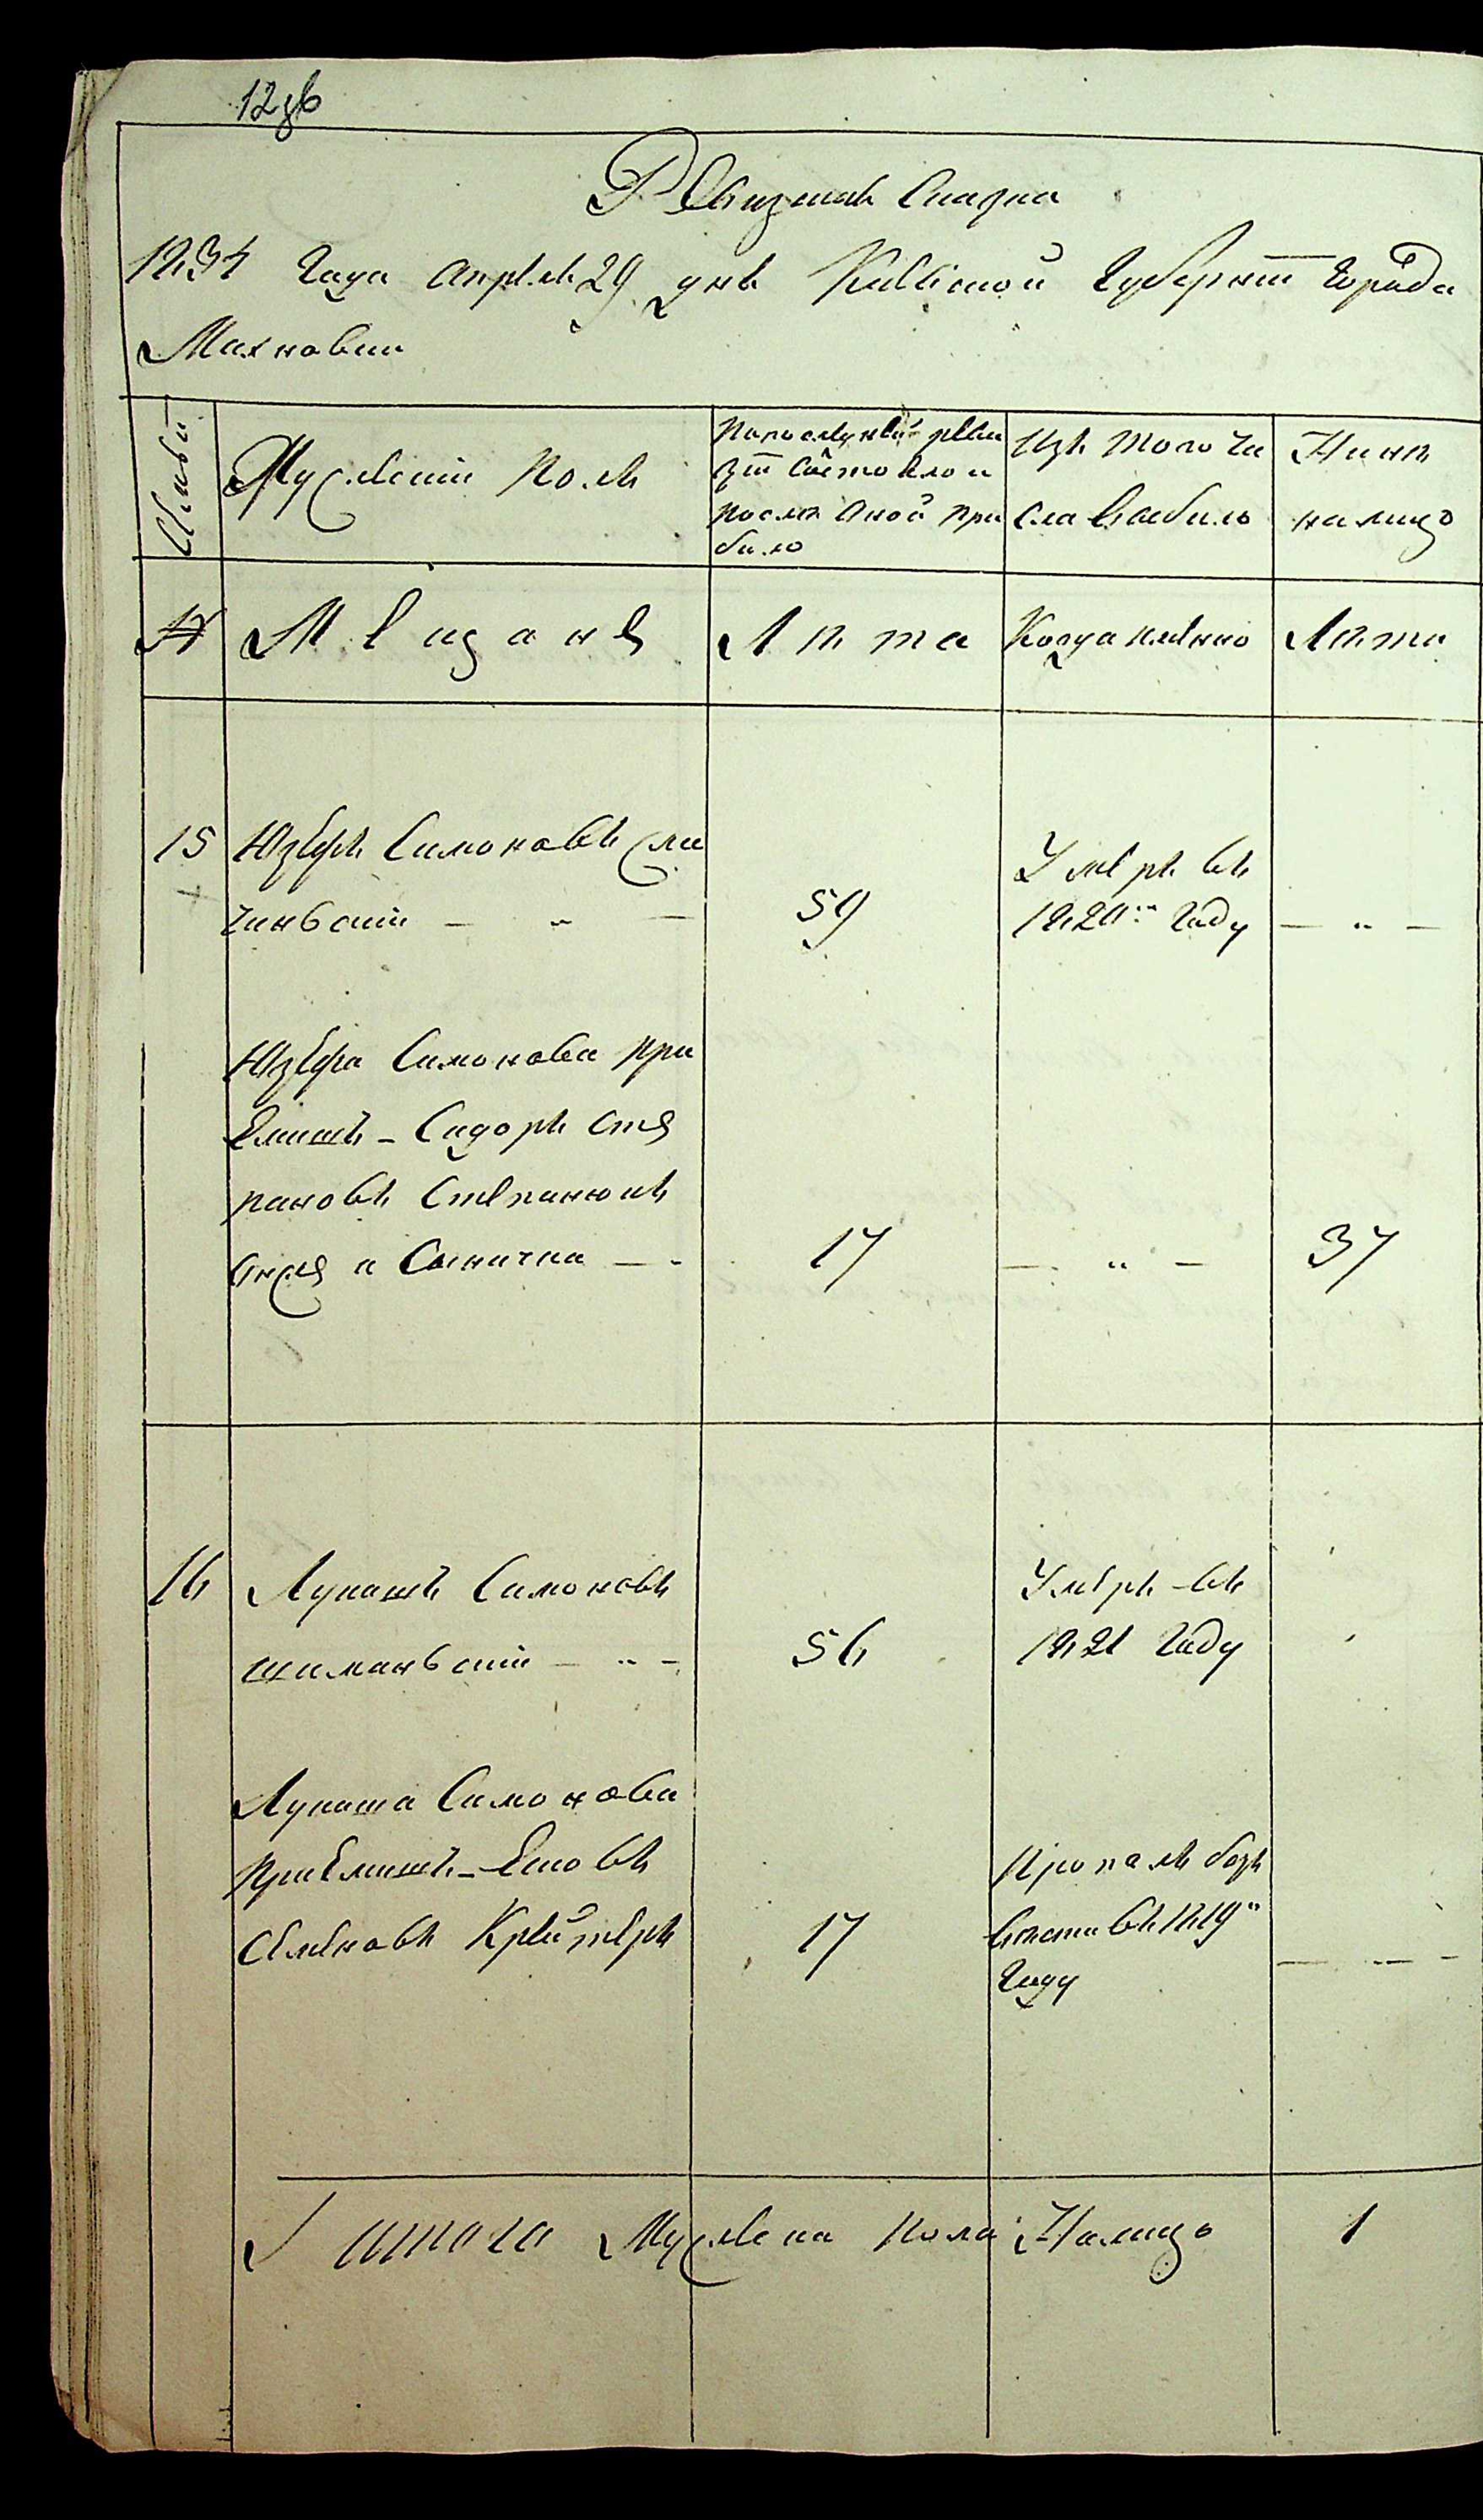 12зв
Ревизская Сказка
1834 Года апреля 29 дня Киевской Губернии города
Махновки
Семьи
Мужеский Полъ
По последней реви
зіи Состояло и
после оной при
было
Изъ того чи
сла выбыло
Ныне
на лицо
№
Мещане
Лѣта
Когда именно
Лѣта
15
Юзефъ Симоновъ
59
Умеръ въ
1820м Году
— „ —
Юзефа Симонова при
емышъ - Сидоръ Сте
пановъ Степанюкъ
17
— „ —
37
16
Лукашъ Симоновъ
шимансский — „ —
56
Умеръ въ
1821 Году
Лукаша Симонова
приемышъ -
Семеновъ
17
Пропалъ безъ
вѣсти въ 1819м
Году
— „ —
Итого Мужеска пола Налицо
1